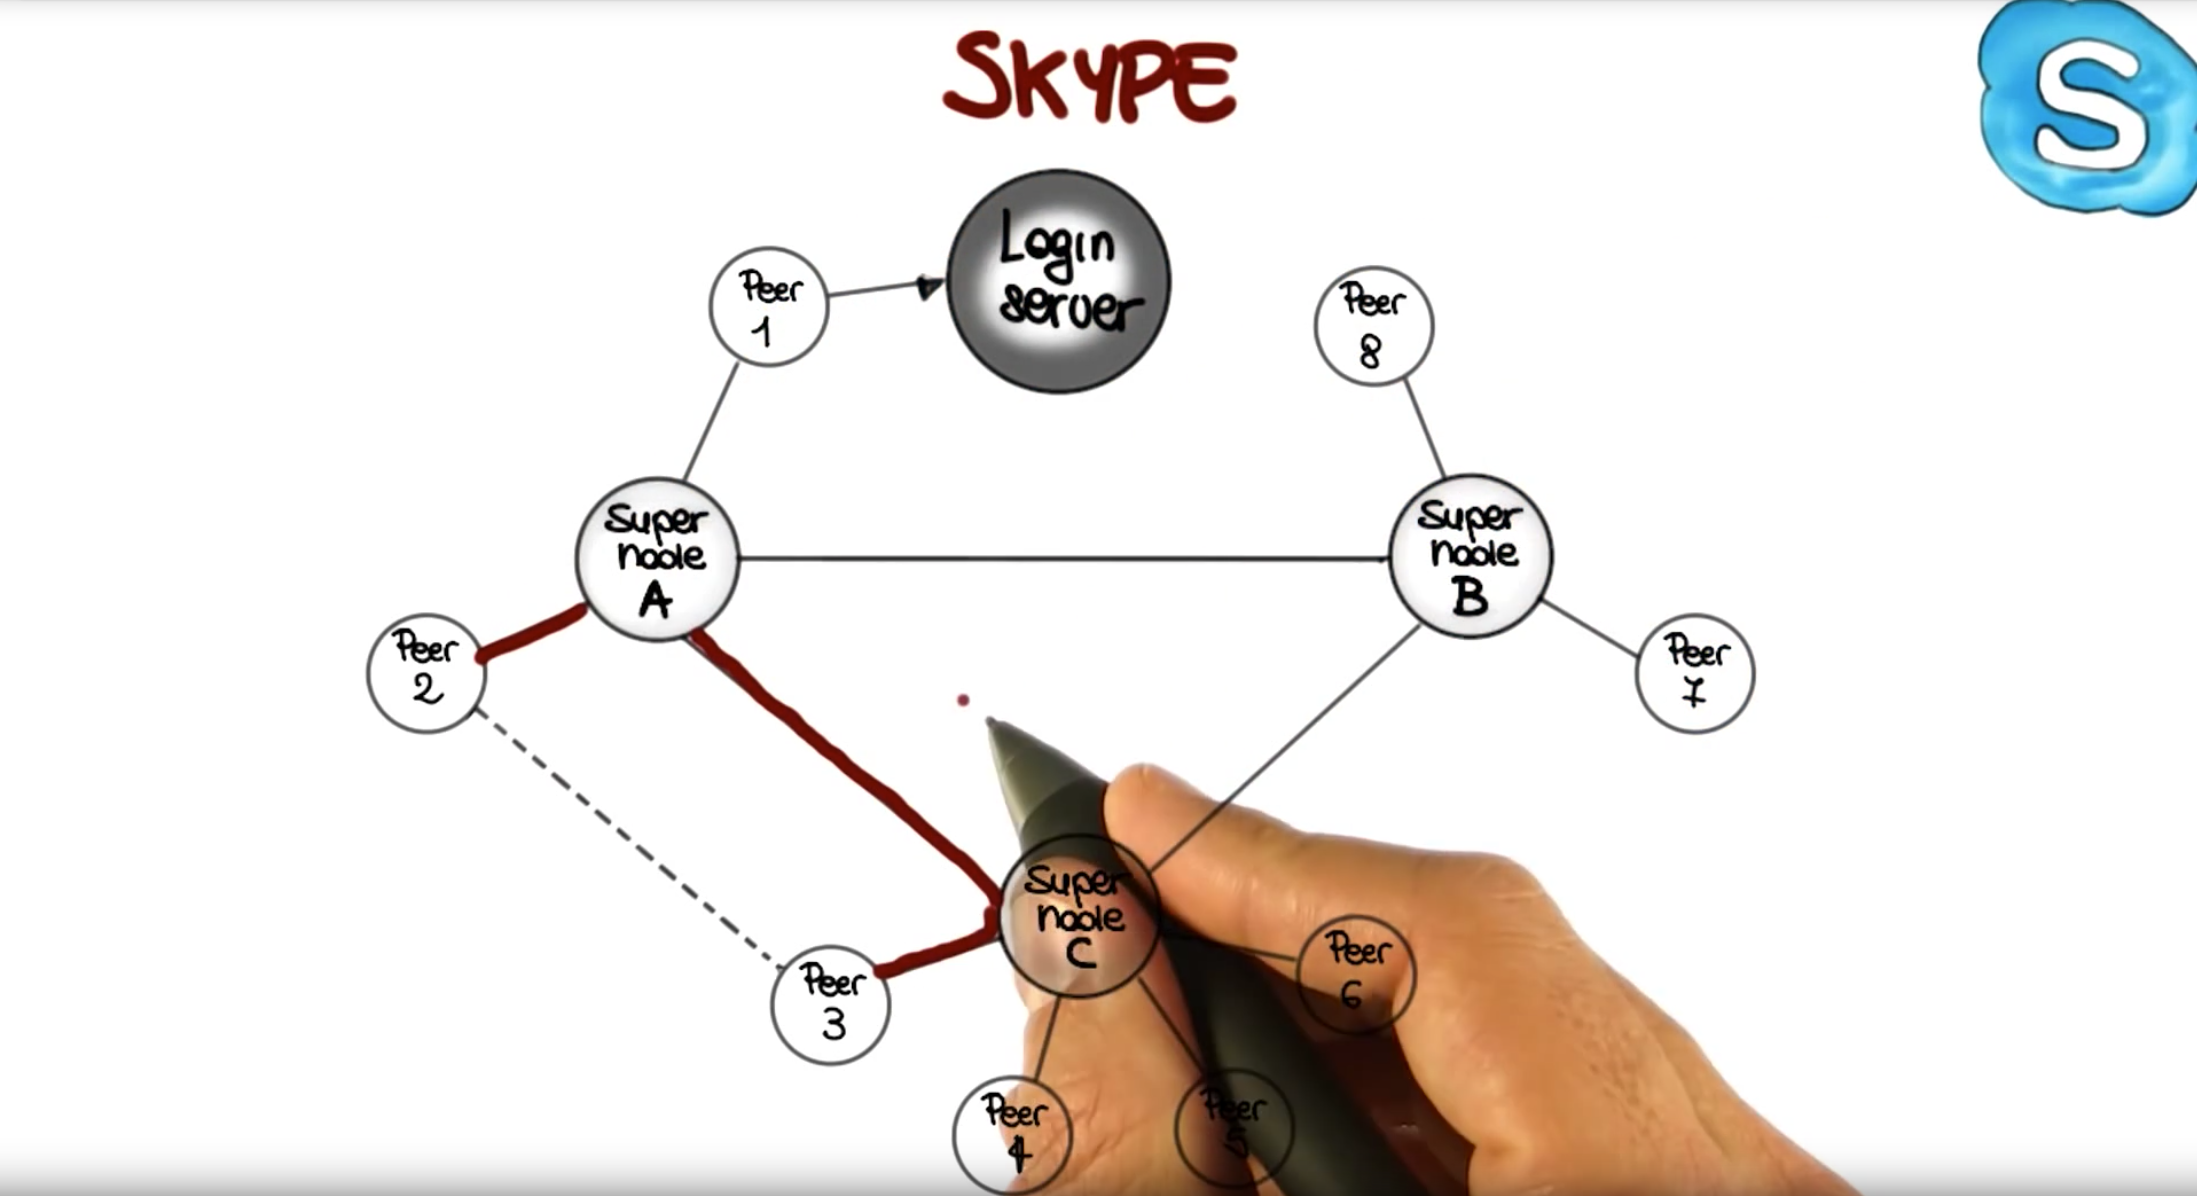 SKYPE
S
Login
server
Peer
1
Peer
8
Super
node
A
Super
node
B
Peer
2
Peer
7
Super
node
C
Peer
3
Peer
6
Peer
4
Peer
5